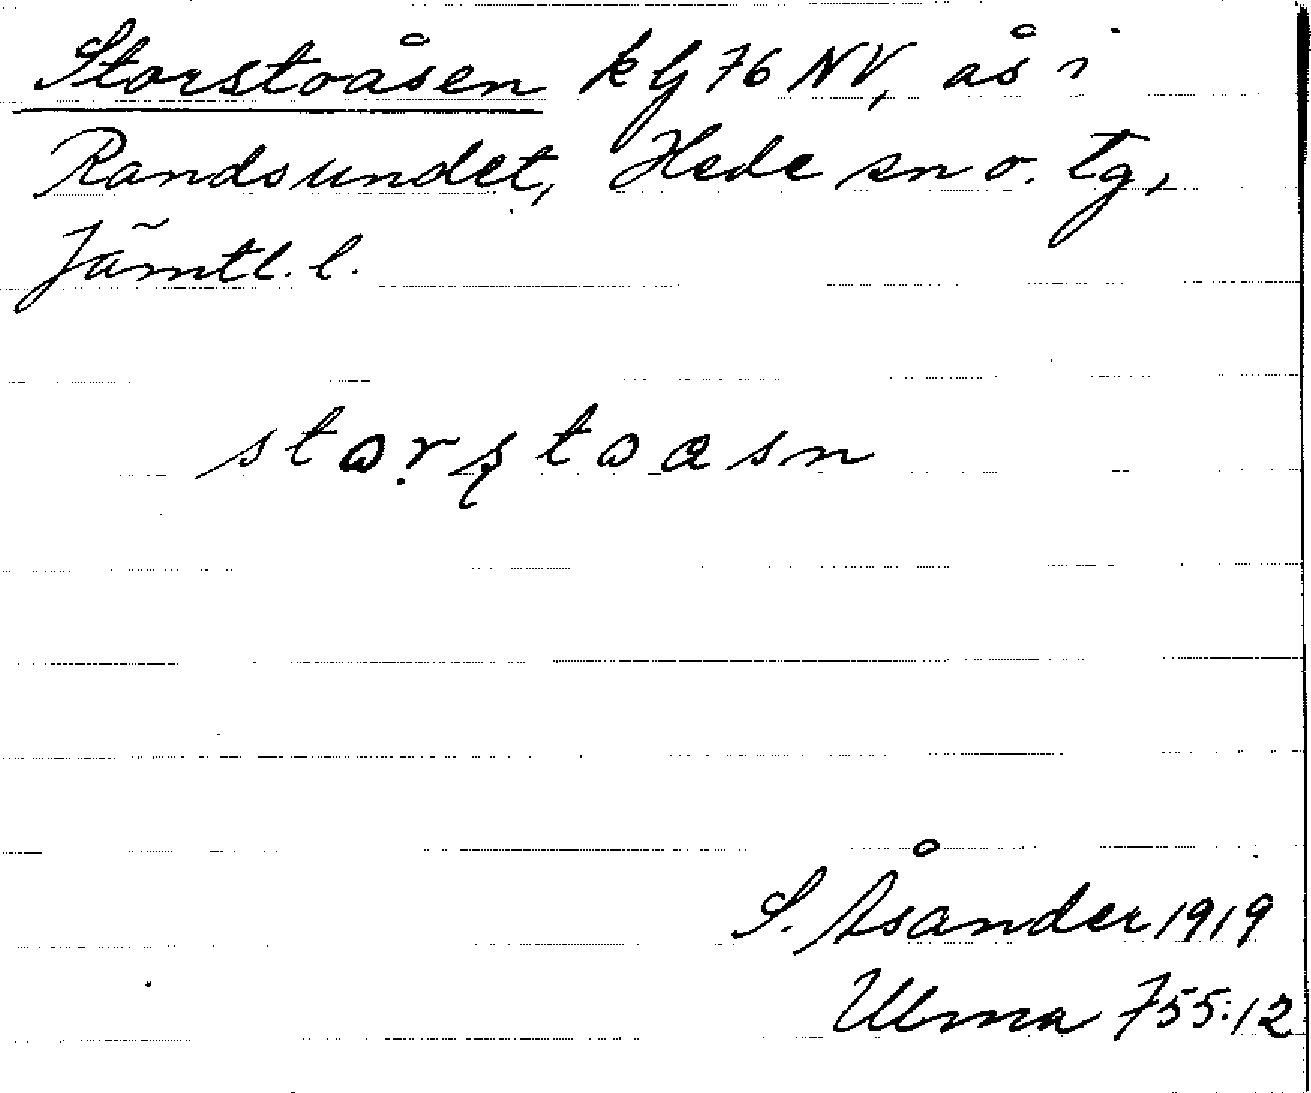 Storstoåsen kbl 76 NV, ås i
Randsundet, Hede sn o. tg,
Jämtl. l.
stor̥ʂtoasn
S. Åsander 1919
Ulma 755:12